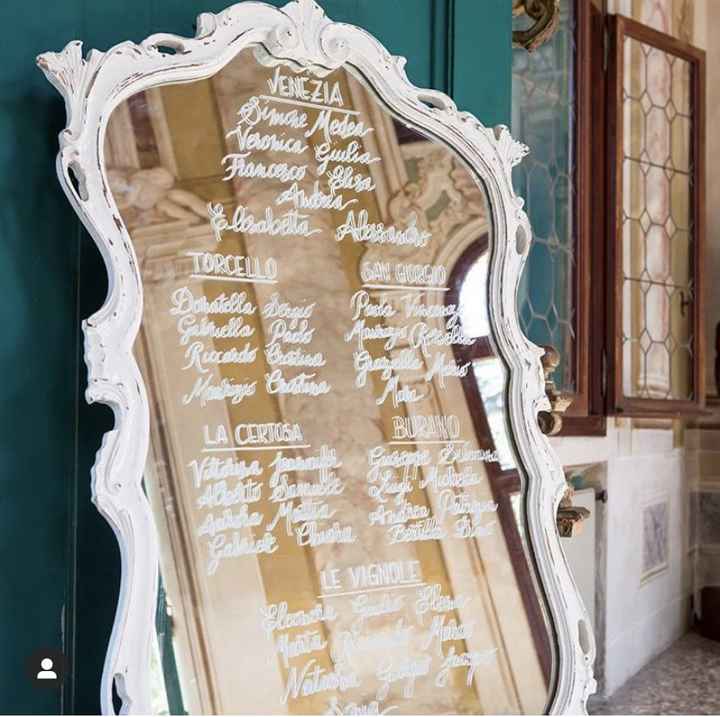 VENEZIA
Simone Medea
Veronica Giulia
Francesco Eliza
Andrea
Elisabetta Alessandro
TORCELLO
Donatella Sergio
Gabriella Paolo
Riccardo Cristina
Maurizio Cristina
SAN GIORGIO
Paola Vincenzo
Maurizio Rossella
Graziella Mario
Mara
LA CERTOSA
Alberto Samuele
Sandra Mattia
Gabriele Chiara
BURANO
Giuseppe Silvana
Luigi Michela
Andrea Patrizia
Bertilla
LE VIGNOLE
Eleonora Giulio Elena
Marta Riccardo
Natasha Giorgio
Sara